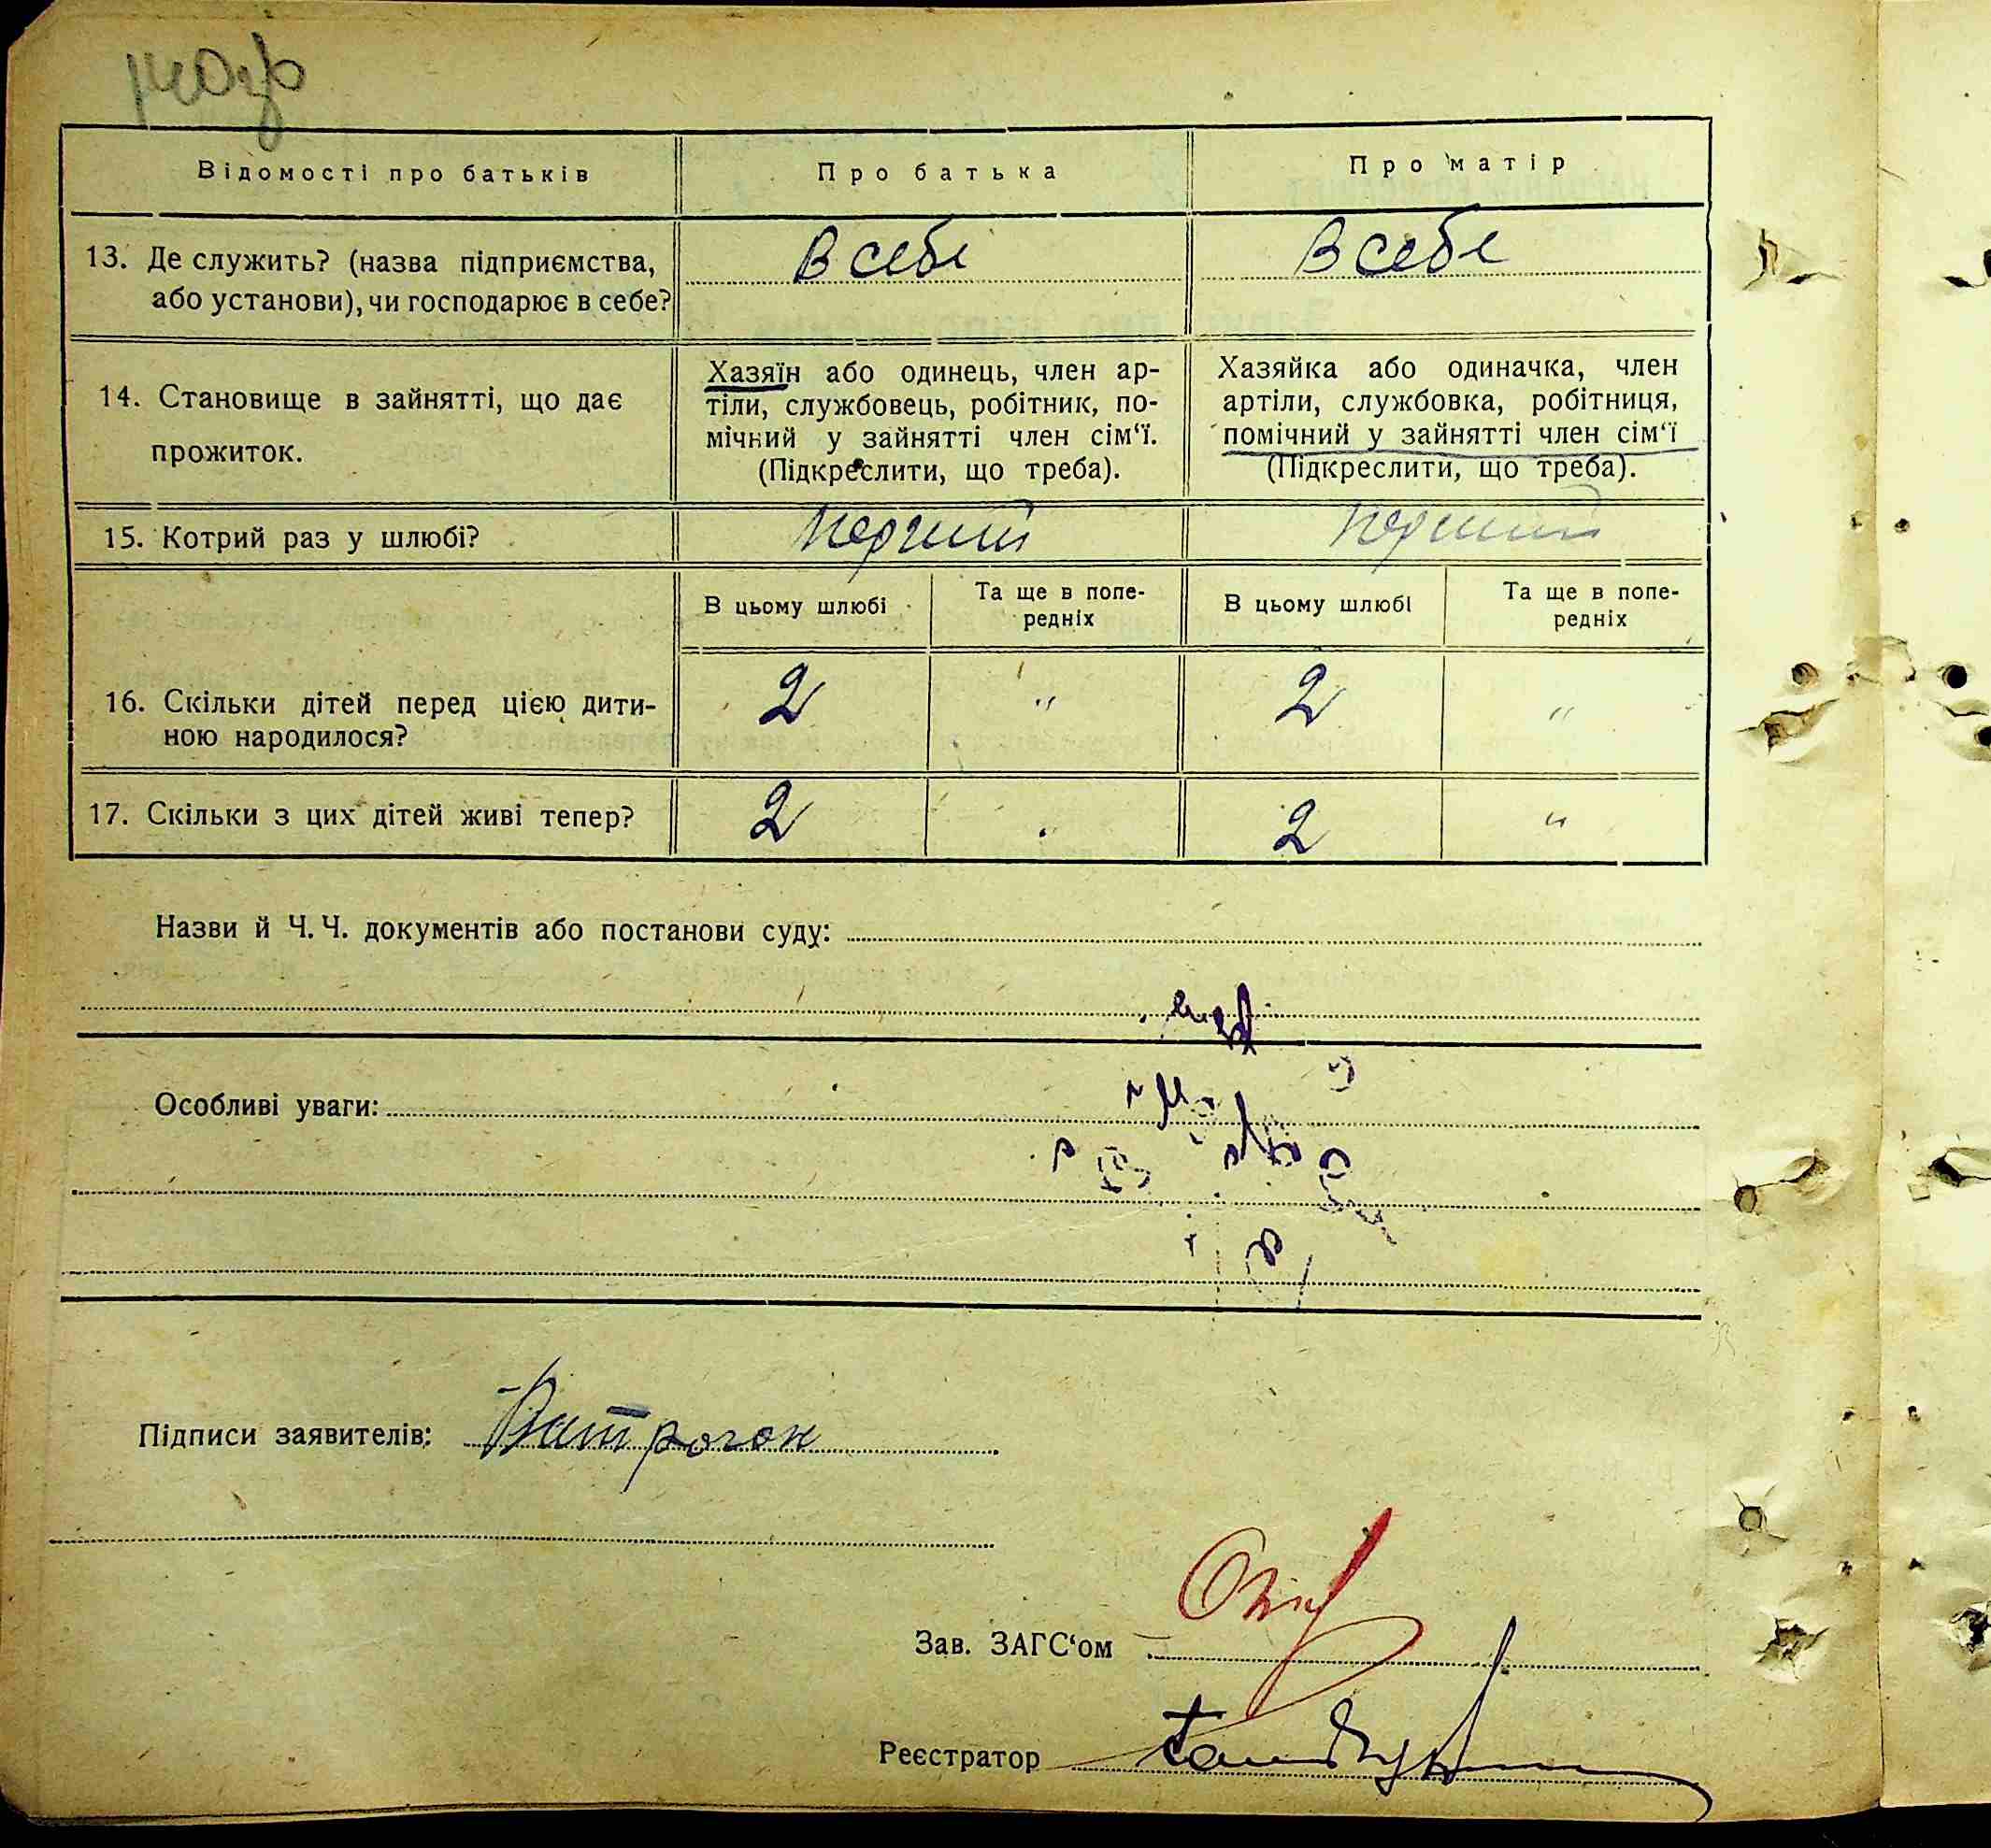 Відомості про батьків
Про батька
Про матір
13. Де служить? (назва підприємства,
або установи), чи господарює в себе?
В себе
В себе
14. Становище в зайнятті, що дає
прожиток.
Хазяїн або одинець, член ар-
тіли, службовець, робітник, по-
мічний у зайнятті член сім‘ї.
(Підкреслити, що треба).
Хазяйка або одиначка, член
артіли, службовка, робітниця,
помічний у зайнятті член сім‘ї
(Підкреслити, що треба).
15. Котрий раз у шлюбі?
Перший
Перший
В цьому шлюбі
Та ще в попе-
редніх
В цьому шлюбі
Та ще в попе-
редніх
16. Скільки дітей перед цією дити-
ною народилося?
2
"
2
"
17. Скільки з цих дітей живі тепер?
2
2
"
Назви й Ч. Ч. документів або постанови суду:
Особливі уваги:
Підписи заявителів:
Зав. ЗАГС‘ом
Реєстратор